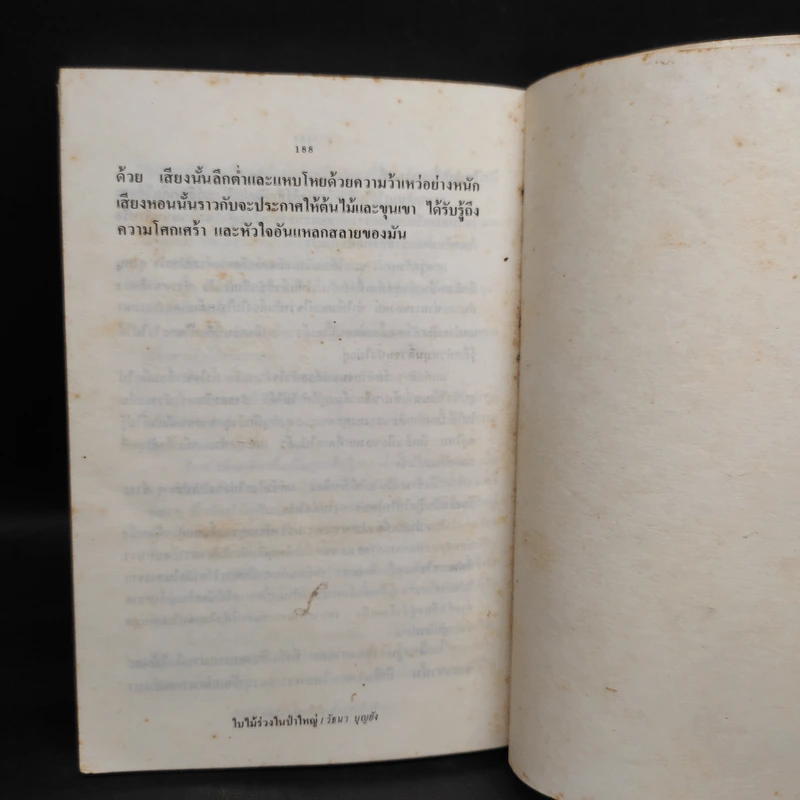 188
ด้วย เสียงนั้นลึกต่ำและแหบโหยด้วยความว้าเหว่อย่างหนัก
เสียงหอนนั้นราวกับจะประกาศให้ต้นไม้และขุนเขา ได้รับรู้ถึง
ความโศกเศร้า และหัวใจอันแหลกสลายของมัน
ใบไม้ร่วงในป่าใหญ่ / วัธนา บุญยัง